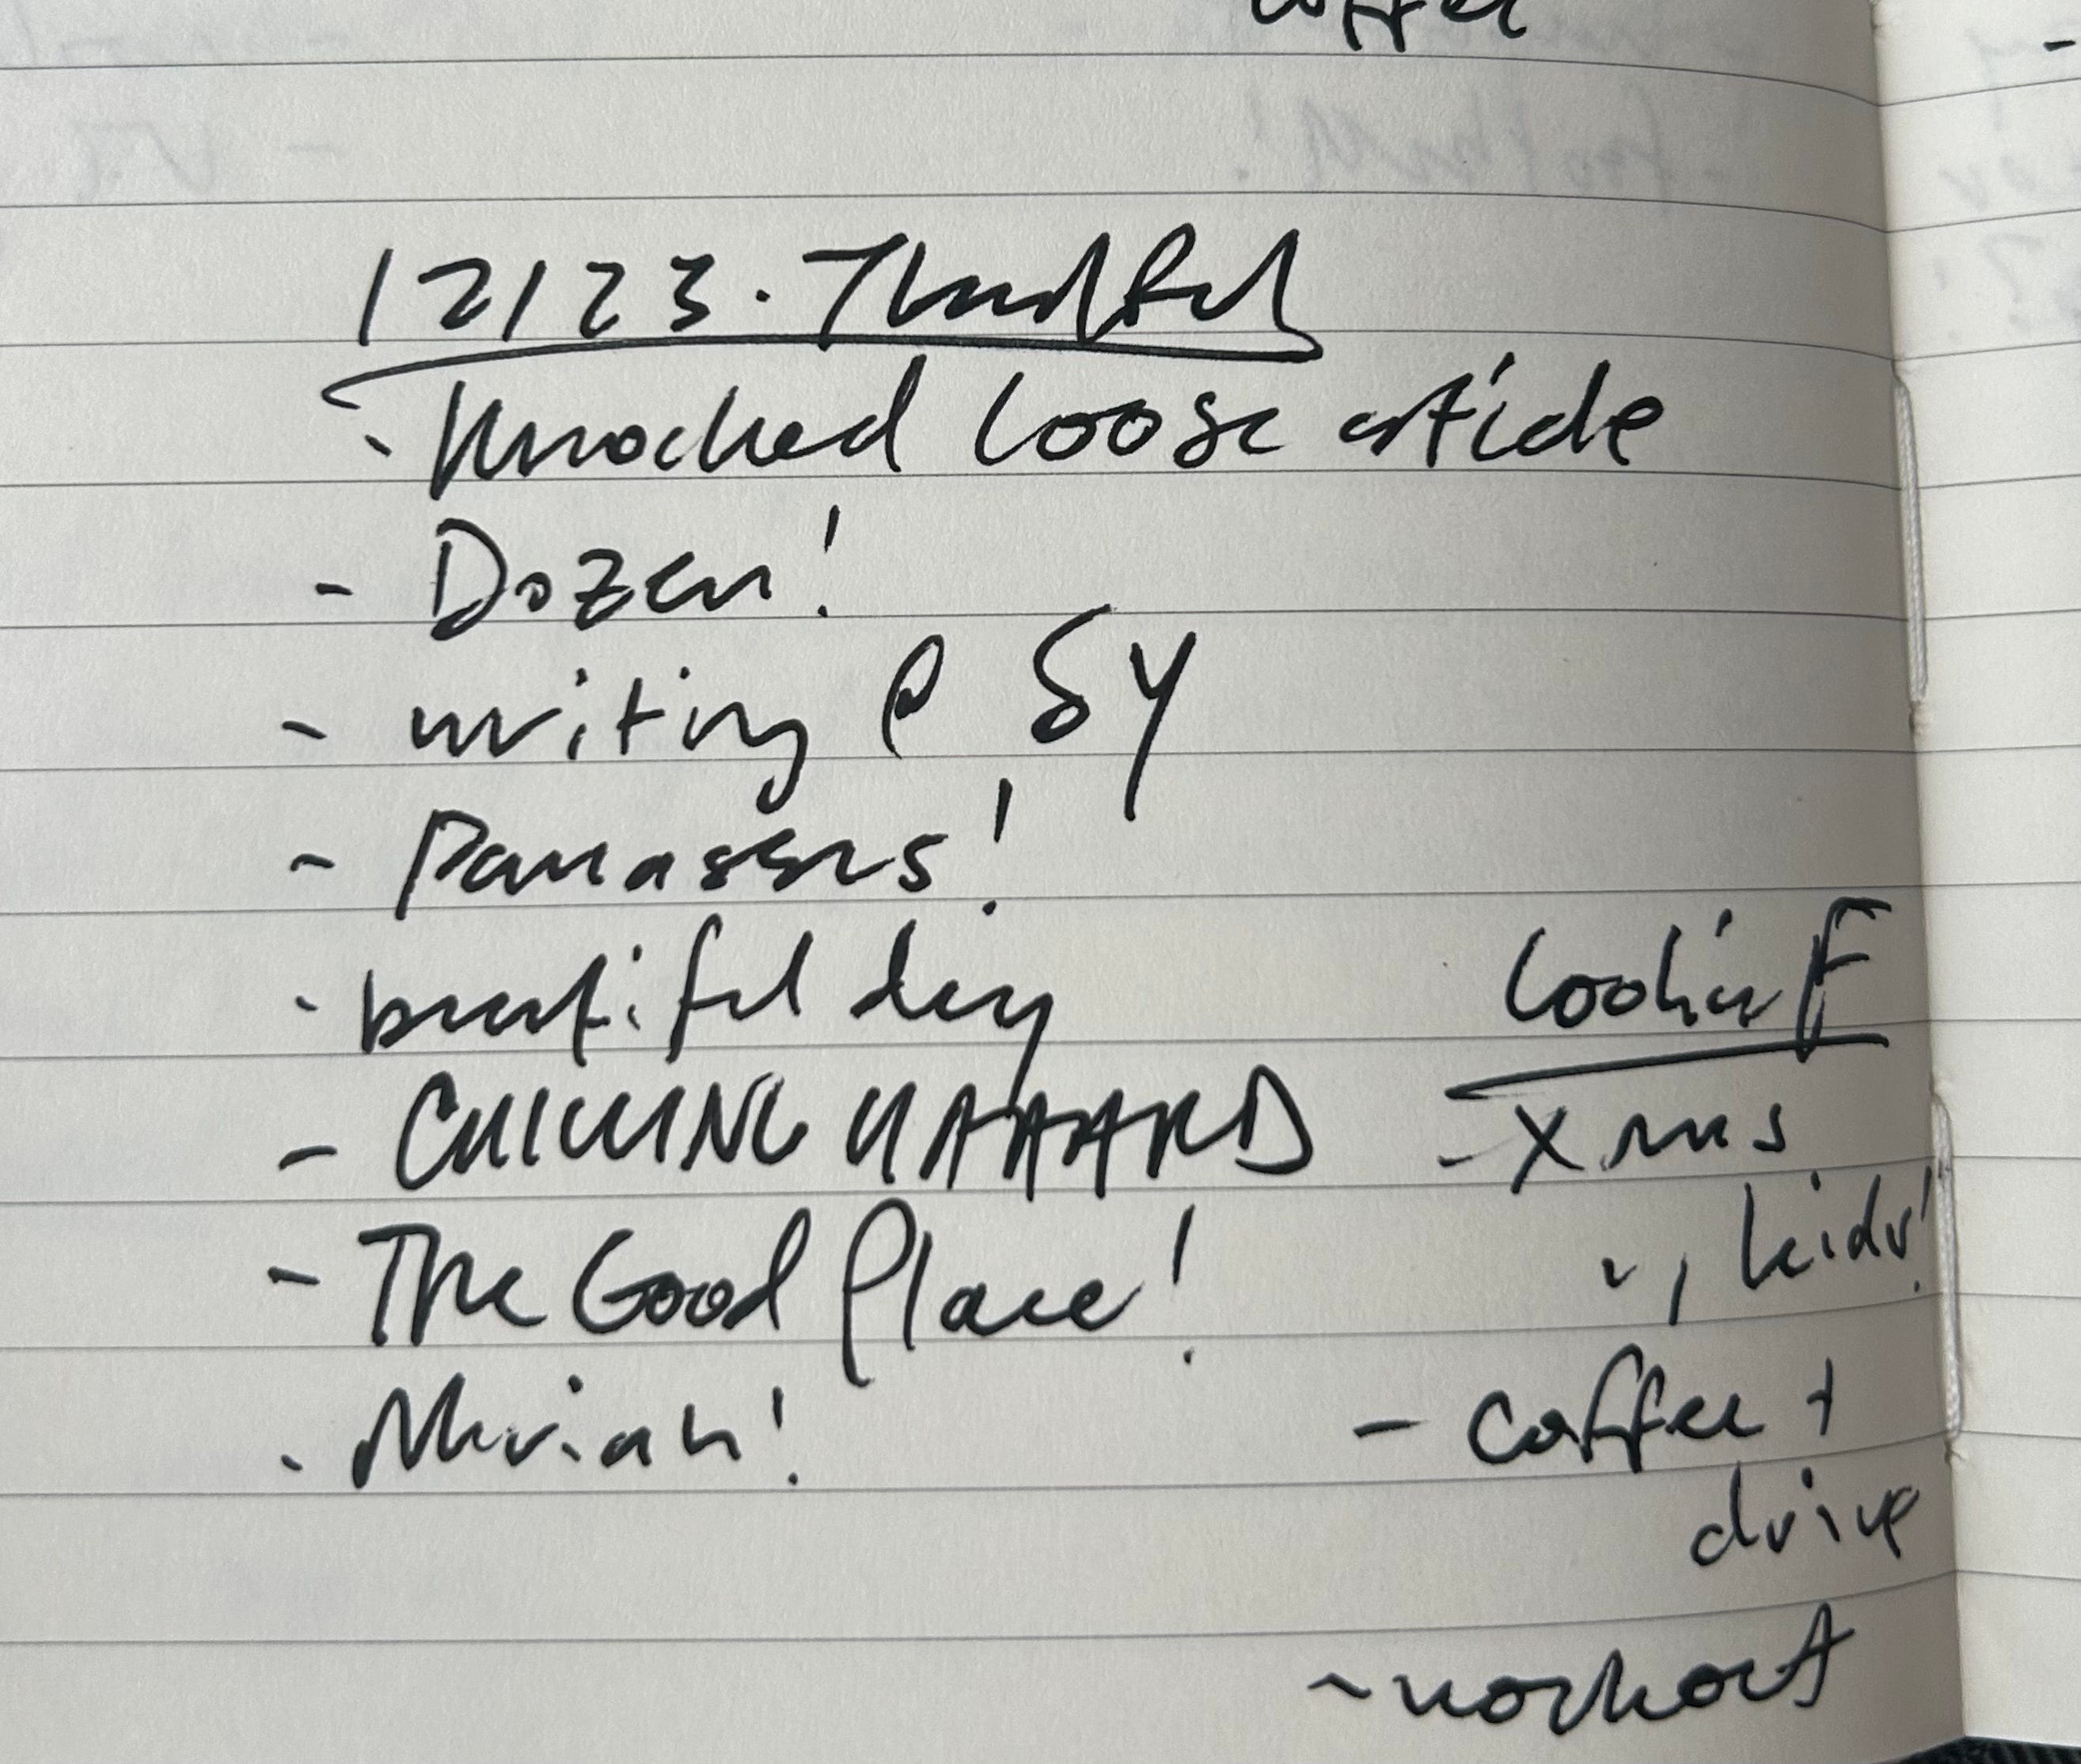 coffee
12/23. Thankful
- Knocked Loose article
- Dozen!
- writing @ SY
- Damascus!
- beautiful day
- CHILLING HAAAARD
- The Good Place!
- Mariah!
Lookin F
- Xmas
w/ kids!
- coffee +
drive
- workout